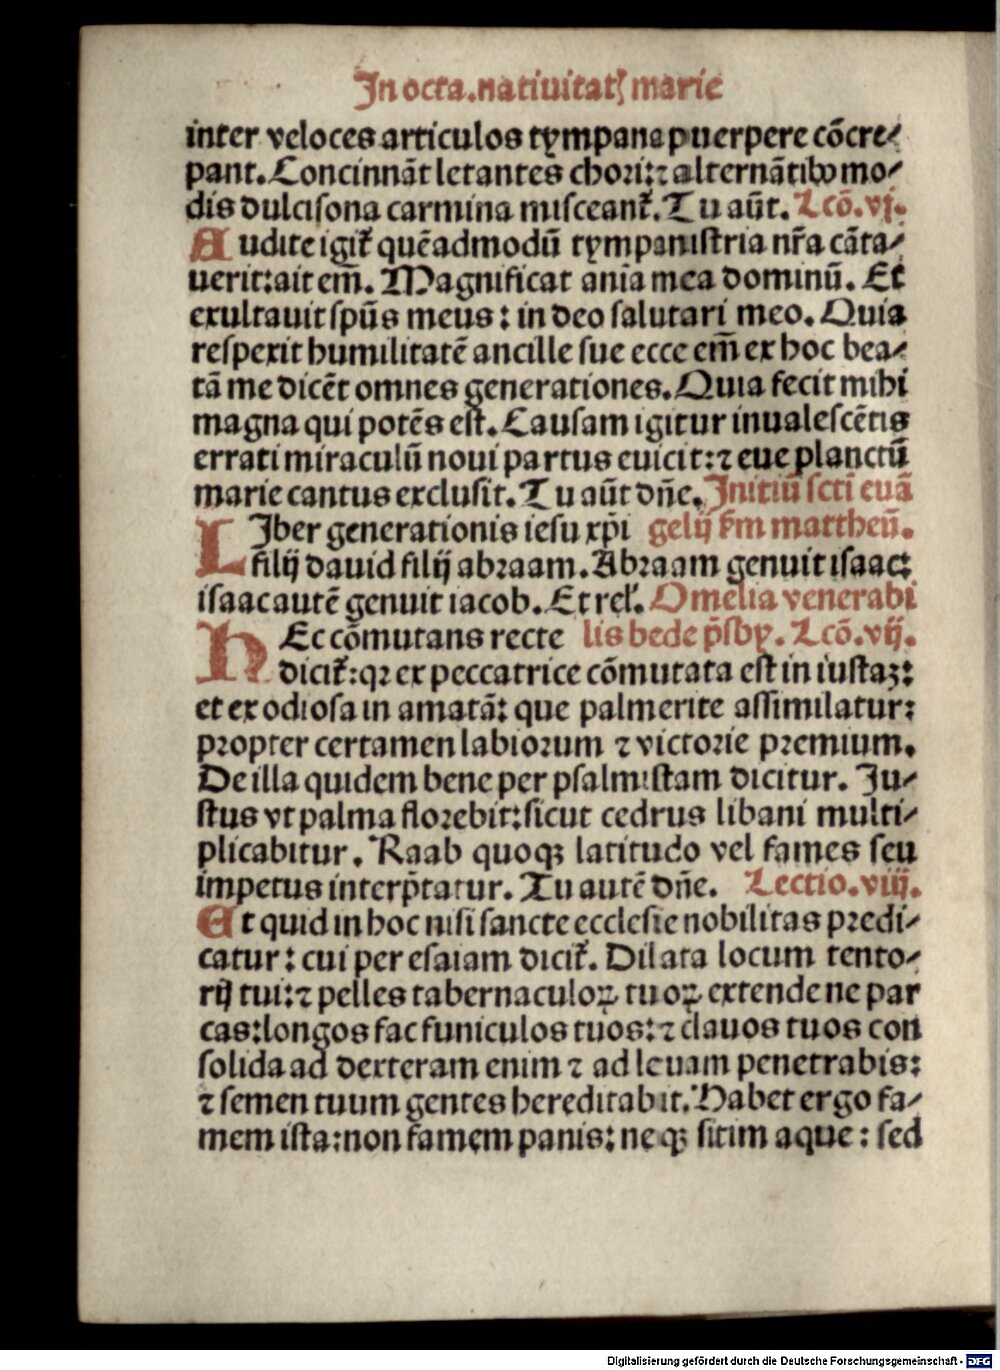 In octa.natiuitatꝭ marie
inter veloces articulos tympana puerpere cōcre⸗
pant. Concinnāt letantes chori:⁊ alternātibꝰ mo⸗
dis dulcisona carmina misceant᷑. Tu aūt. Lcō.vj.
Audite igit᷑ quēadmodū tympanistria nr̄a cāta⸗
uerit:ait em̄. Magnificat anīa mea dominū. Et
exultauit spūs meus: in deo salutari meo. Quia
respexit humilitatē ancille sue ecce em̄ ex hoc bea⸗
tā me dicēt omnes generationes. Quia fecit mihi
magna qui potēs est. Causam igitur inualescētis
errati miraculū noui partus euicit:⁊ eue planctū
marie cantus exclusit. Tu aūt dn̄e. Initiū scti euā
LIber generationis iesu xp̄i gelij ẜm mattheū.
filij dauid filij abraam. Abraam genuit isaac:
isaac autē genuit iacob. Et rel̕. Omelia venerabi
HEc cōmutans recte lis bede p̄sby. Lcō.vij.
dicit᷑:qꝛ ex peccatrice cōmutata est in iustaꝫ:
et ex odiosa in amatā: que palme rite assimilatur:
propter certamen laborum ⁊ victorie premium.
De illa quidem bene per psalmistam dicitur. Iu⸗
stus vt palma florebit:sicut cedrus libani multi⸗
plicabitur. Raab quoqꝫ latitudo vel fames seu
impetus interp̄tatur. Tu autē dn̄e. Lectio.viij.
Et quid in hoc nisi sancte ecclesie nobilitas predi⸗
catur: cui per esaiam dicit᷑. Dilata locum tento⸗
rij tui:⁊ pelles tabernaculoꝝ tuoꝝ extende ne par
cas:longos fac funiculos tuos:⁊ clauos tuos con
solida ad dexteram enim ⁊ ad leuam penetrabis:
⁊ semen tuum gentes hereditabit. Habet ergo fa⸗
mem ista:non famem panis: neqꝫ sitim aque: sed
Digitalisierung gefördert durch die Deutsche Forschungsgemeinschaft - DFG